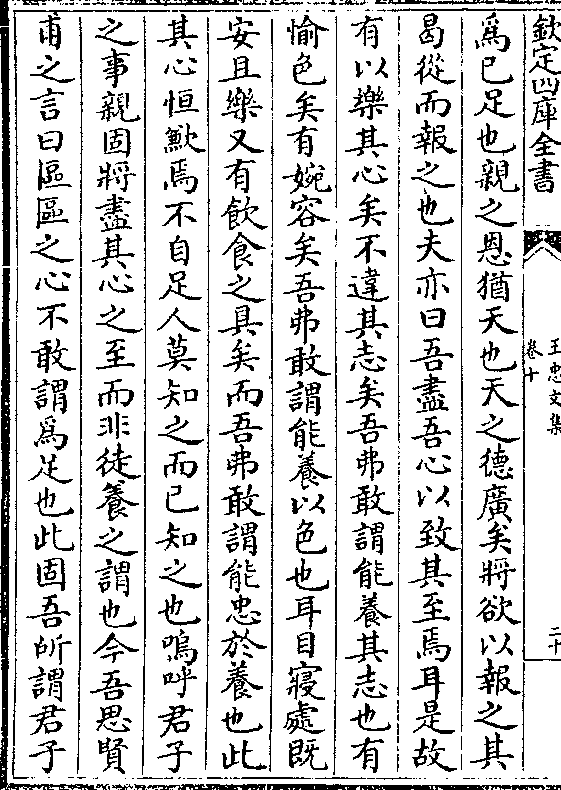 欽定四庫全書
王忠文集
卷十
二十
爲已足也親之恩猶天也天之德廣矣將欲以報之其
曷從而報之也夫亦曰吾盡吾心以致其至焉耳是故
有以樂其心矣不違其志矣吾弗敢謂能養其志也有
愉色矣有婉容矣吾弗敢謂能養以色也耳目寢處既
安且樂又有飲食之具矣而吾弗敢謂能忠於養也此
其心恒歉焉不自足人莫知之而已知之也嗚呼君子
之事親固將盡其心之至而非徒養之謂也今吾思賢
甫之言曰區區之心不敢謂爲足也此固吾所謂君子